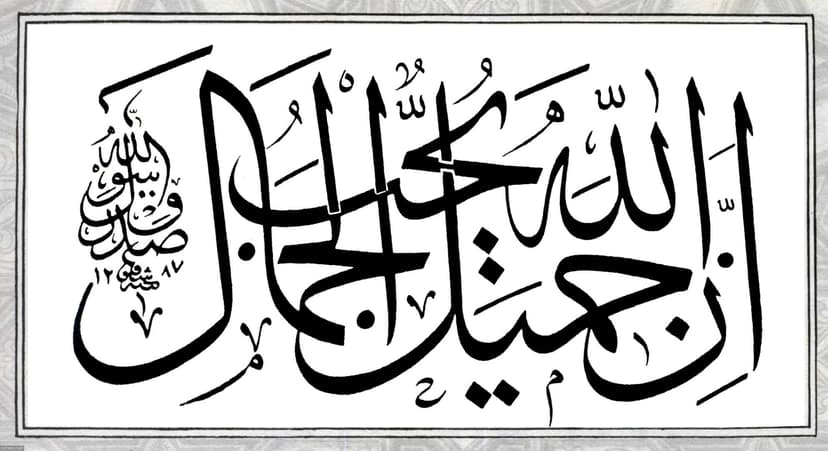 إنّ الله جميل يحبّ الجمال
صدق رسول الله
شفيق
١٢٨٧